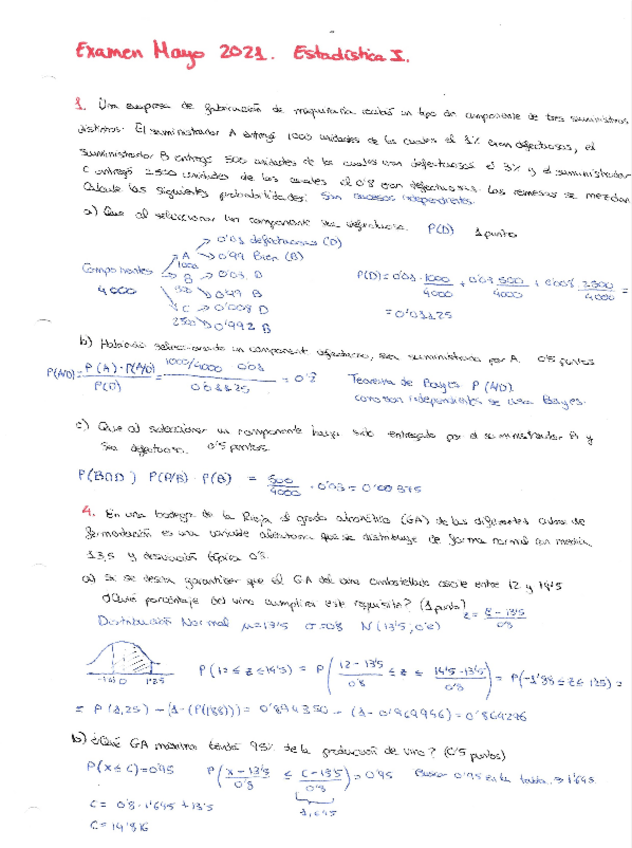 Examen Mayo 2021. Estadística I.
1. Una empresa de fabricación de maquinaria recibió un tipo de componente de tres suministros
distintos. El suministrador A entregó 1000 unidades de las cuales el 1% eran defectuosas, el
suministrador B entregó 500 unidades de las cuales eran defectuosas el 3% y el suministrador
C entregó 2500 unidades de las cuales el 0'8 eran defectuosas. Las remesas se mezclan
Calcule las siguientes probabilidades: Son sucesos independientes.
a) Que al seleccionar un componente sea defectuoso. P(D) 1 punto
Componentes
4000
A
1000
0'01 defectuosas (D)
0'99 Bien (B)
B
500
0'03 D
0'97 B
C
2500
0'008 D
0'992 B
P(D) = 0'01 · 1000/4000 + 0'03 500/4000 + 0'008 2500/4000 =
= 0'01125
b) Habiendo seleccionado un component defectuoso, sea suministrado por A. 0'5 puntos
P(A/D) = P(A) · P(A/D) / P(D) = 1000/4000 · 0'01 / 0'01125 = 0'2
Teorema de Bayes P(A/D)
como son independientes se usa Bayes.
c) Que al seleccionar un componente haya sido entregado por el suministrador B y
sea defectuoso. 0'5 puntos
P(B∩D) P(A/B) · P(B) = 500/4000 · 0'03 = 0'00375
4. En una bodega de la Rioja el grado alcohólico (GA) de las diferentes cubas de
fermentación es una variable aleatoria que se distribuye de forma normal con media
13,5 y desviación típica 0'8.
a) Si se desea garantizar que el GA del vino embotellado oscile entre 12 y 14'5
¿Qué porcentaje del vino cumpliría este requisito? (1 punto) z = x - 13'5 / 0'8
Distribución Normal μ=13'5 σ=0'8 N(13'5, 0'8)
P(12 ≤ z ≤ 14'5) = P(12 - 13'5 / 0'8 ≤ z ≤ 14'5 - 13'5 / 0'8) = P(-1'88 ≤ z ≤ 1'25) =
= P(1,25) - (1 - (P(1'88))) = 0'894350 - (1 - 0'969946) = 0'864296
b) ¿Qué GA máximo tendrá 95% de la producción de vino? (0'5 puntos)
P(x ≤ c) = 0'95 P(x - 13'5 / 0'8 ≤ c - 13'5 / 0'8) = 0'95 Buscar 0'95 en la tabla ⇒ 1'645.
1,645
C = 0'8 · 1'645 + 13'5
C = 14'816